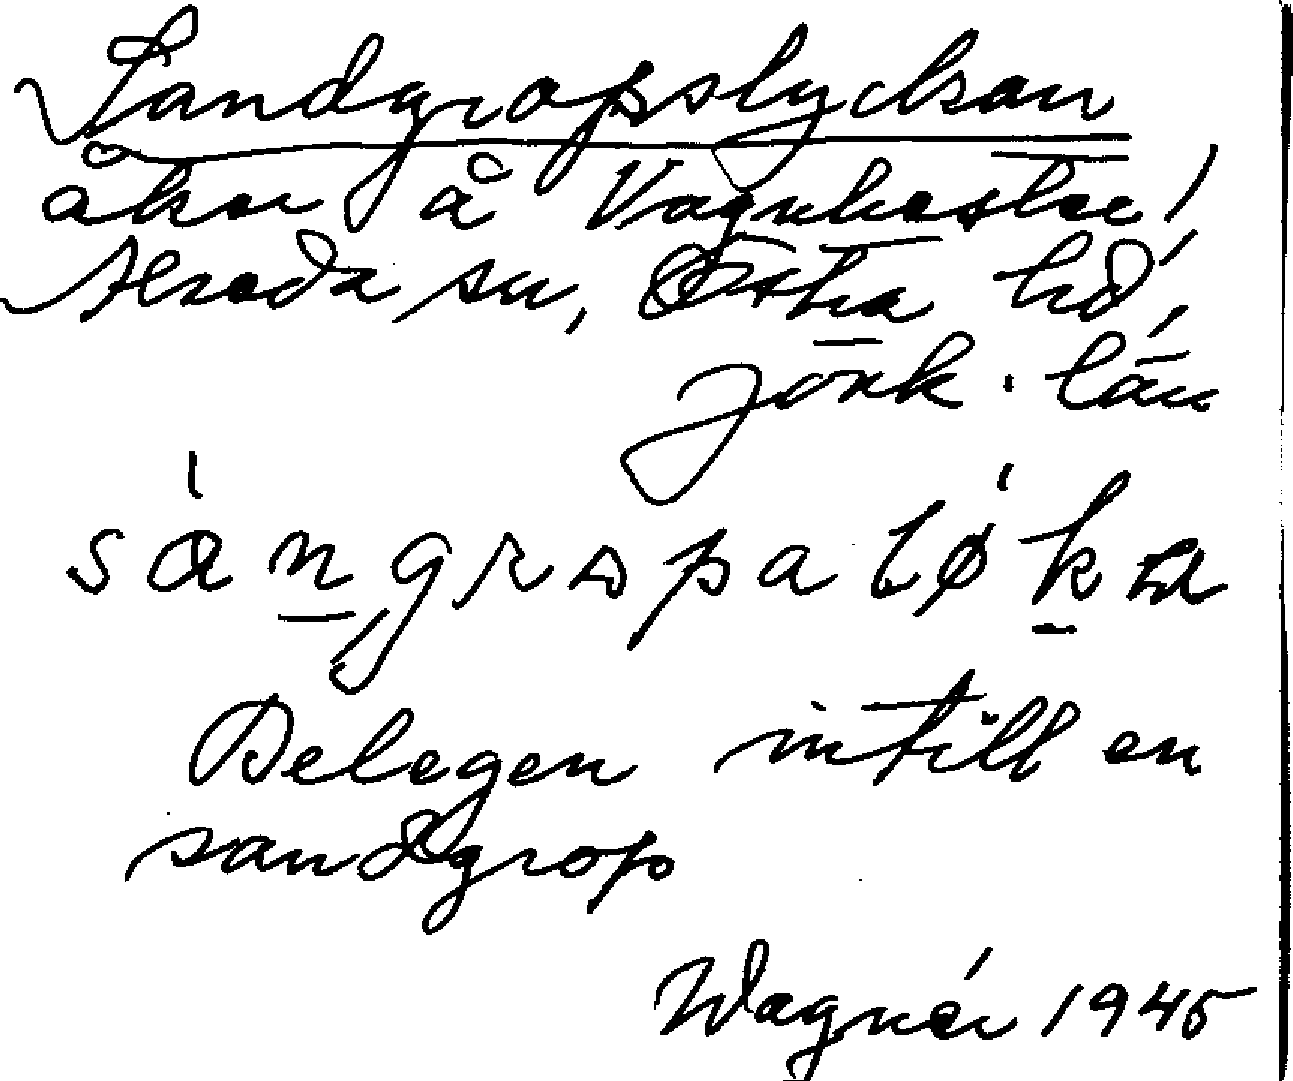 Sandgropslyckan
åker å Vagnhester,
Alseda sn, Östra hd,
Jönk. län
sangrɷpaløka
Belegen intill en
sandgrop
Wagnér 1945